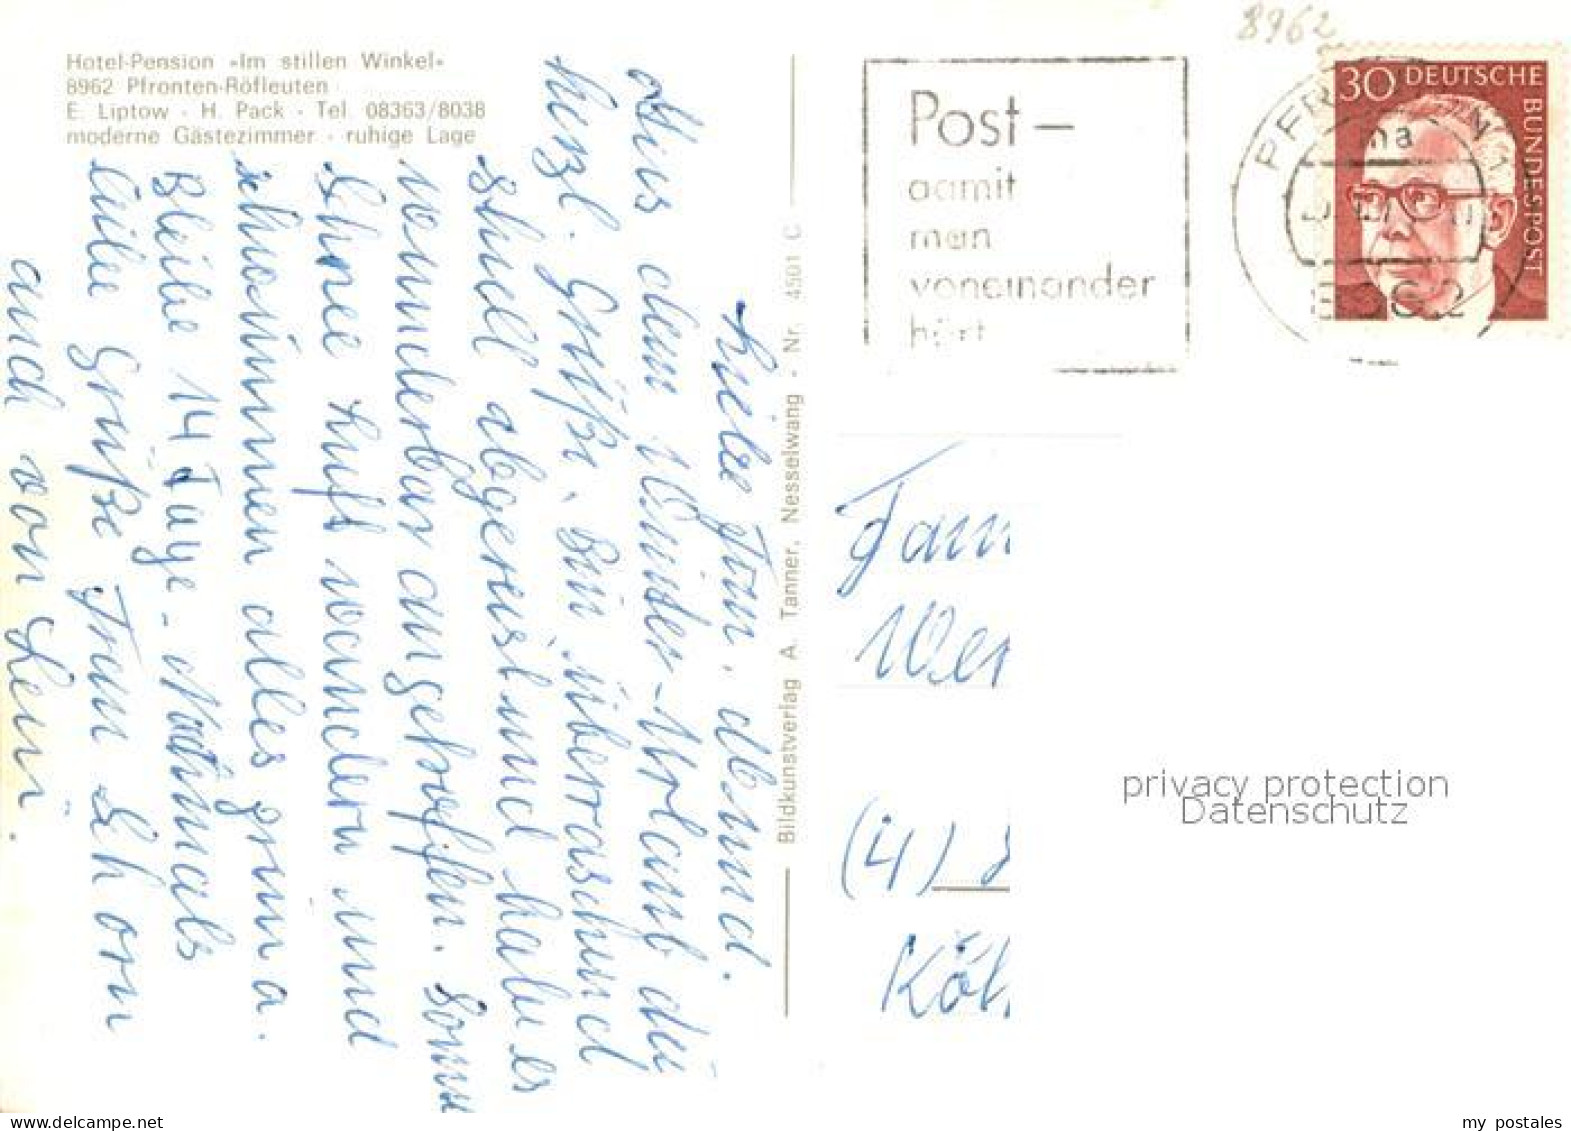 Hotel-Pension »Im stillen Winkel«
8962 Pfronten-Röfleuten
E. Liptow · H. Pack · Tel. 08363/8038
moderne Gästezimmer · ruhige Lage
8962
Post –
damit
man
voneinander
hört
PFRONTEN 1
8962
30 DEUTSCHE BUNDESPOST
Liebe Fam.
Aus dem Winter-Urlaub die
herzl. Grüße. Bin überraschend
schnell abgereist und habe es
wunderbar angetroffen. Sonne
Schnee Luft wandern und
schwimmen alles prima.
Bleibe 14 Tage. Nochmals
liebe Grüße Frau Schorn
auch von
Bildkunstverlag A. Tanner, Nesselwang · Nr. 4501 C
Fam
Wer
(4)
Köl
privacy protection
Datenschutz
my postales
www.delcampe.net